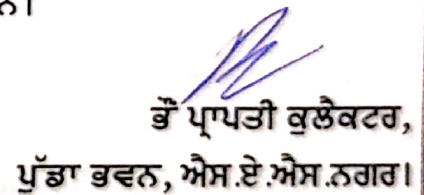 ਨ।
ਭੌਂ ਪ੍ਰਾਪਤੀ ਕੁਲੈਕਟਰ,
ਪੁੱਡਾ ਭਵਨ, ਐਸ.ਏ.ਐਸ.ਨਗਰ।